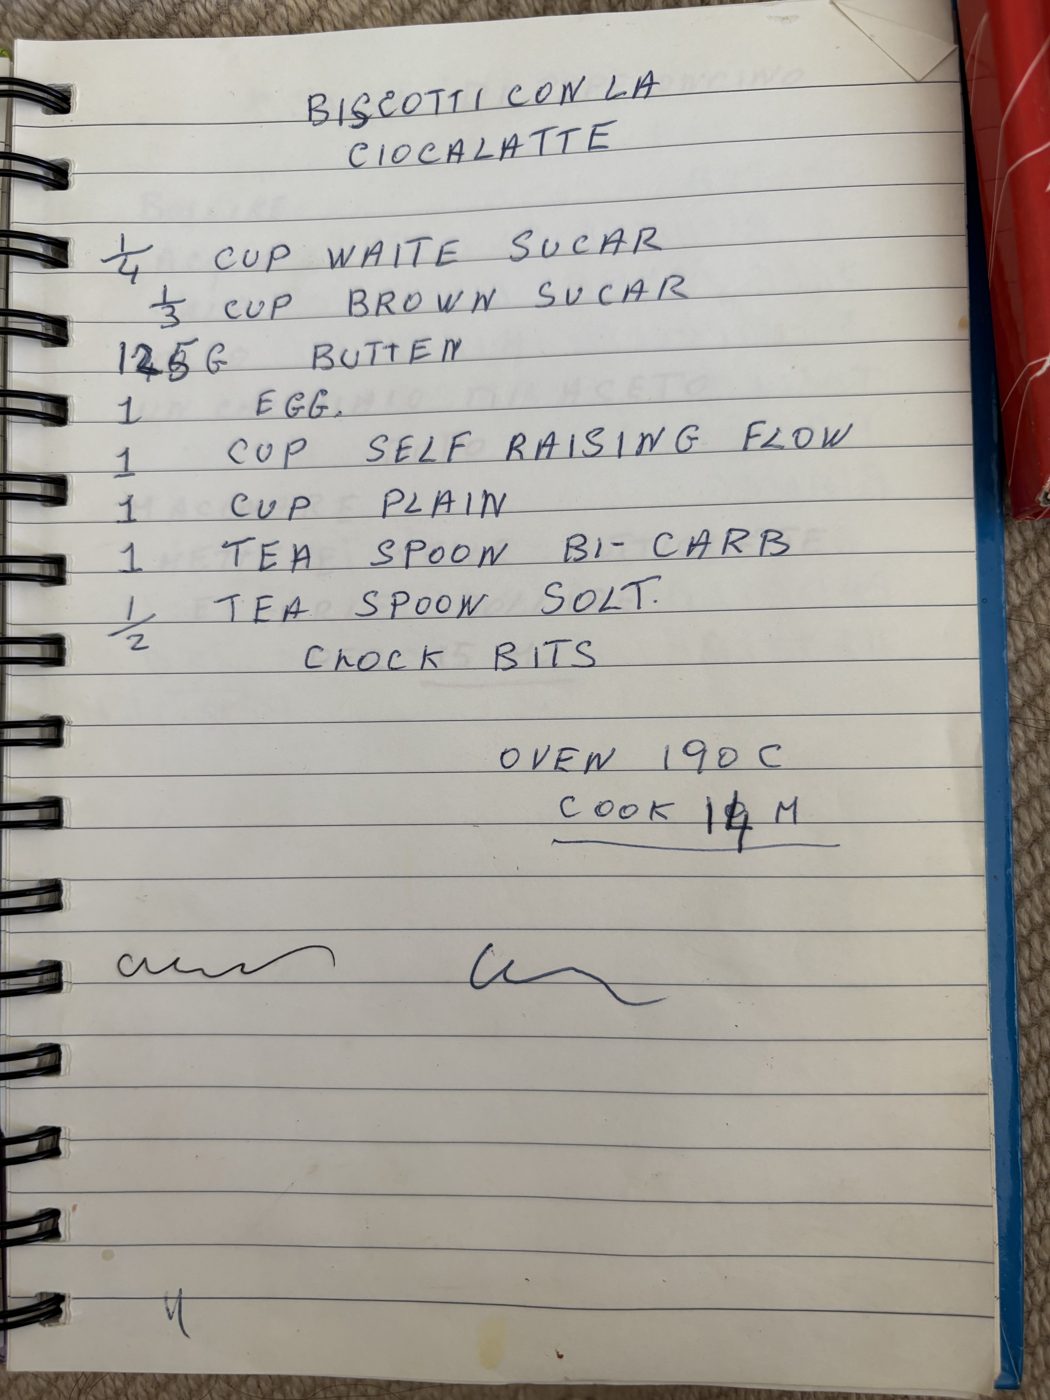 BISCOTTI CON LA
CIOCALATTE
1/4 CUP WAITE SUCAR
1/3 CUP BROWN SUCAR
125G BUTTEN
1 EGG.
1 CUP SELF RAISING FLOW
1 CUP PLAIN
1 TEA SPOON BI-CARB
1/2 TEA SPOON SOLT.
CHOCK BITS
OVEN 190 C
COOK 14 M